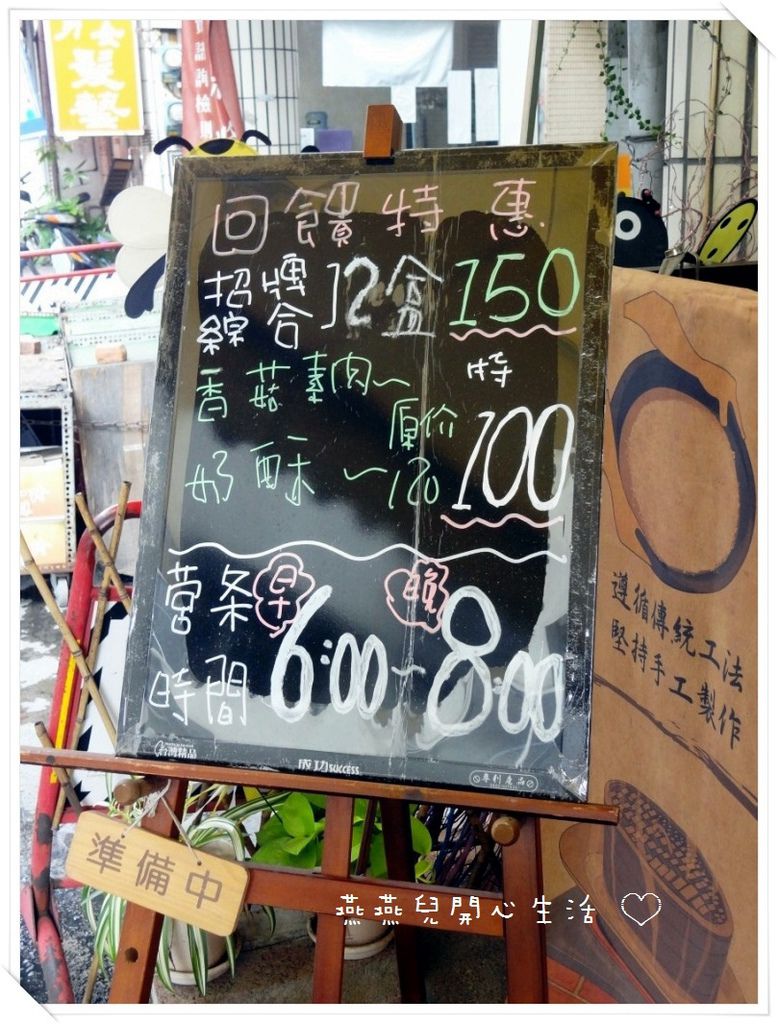 髮藝
回饋特惠
招牌綜合 12盒 150
香菇素肉~
奶酥~
原价
120
特
100
营条時間
早 晚
6:00-8:00
台灣精品
成功 SUCCESS
專利產品
準備中
遵循傳統工法
堅持手工製作
燕燕兒開心生活♡